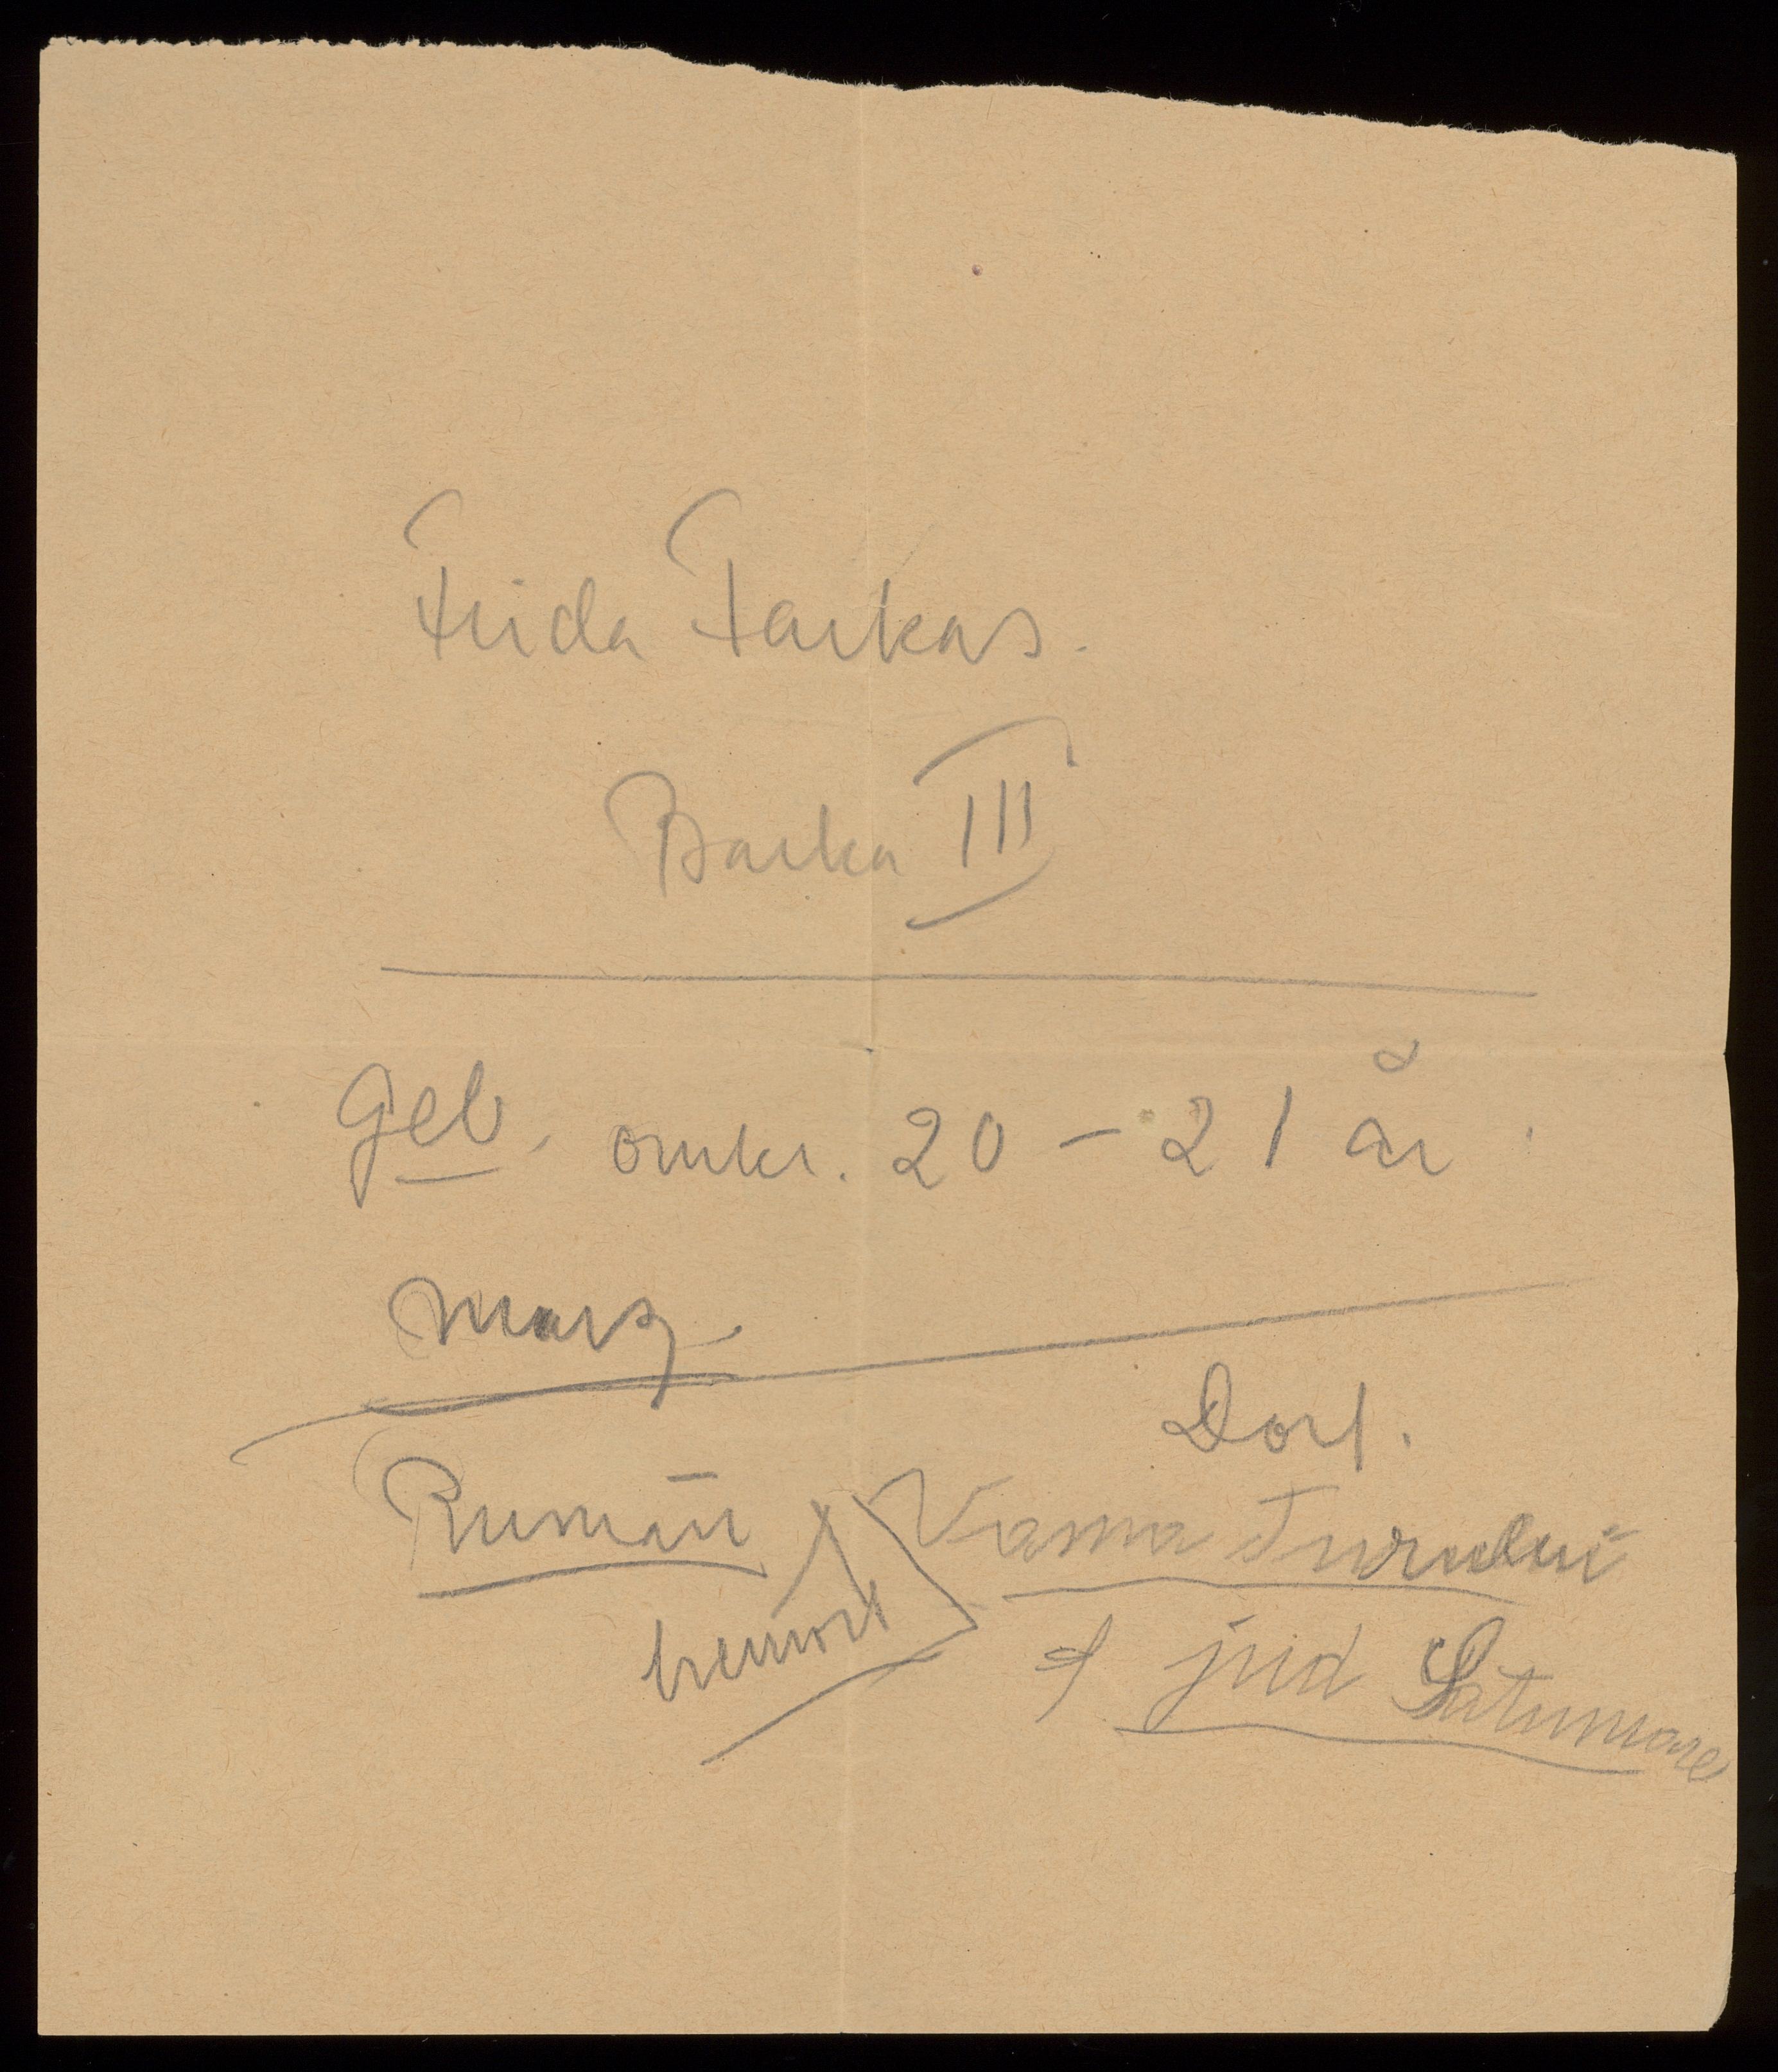 Frida Farkas.
Barka III
Geb. omkr. 20 - 21 år.
Mars.
Dorf.
Rumän Vama Turului
hemort
jud Satumare